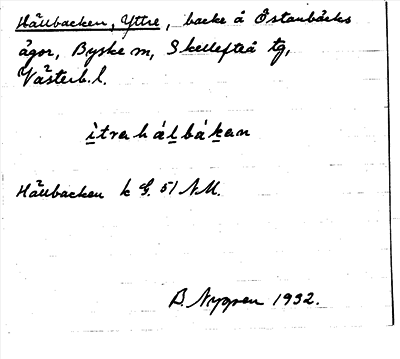 Hällbacken, Yttre, backe å Östanbäcks
ägor, Byske sn, Skellefteå tg,
Västerb. l.
ìtrahálbákan
Hällbacken k G. 51 NM.
B. Nygren 1932.